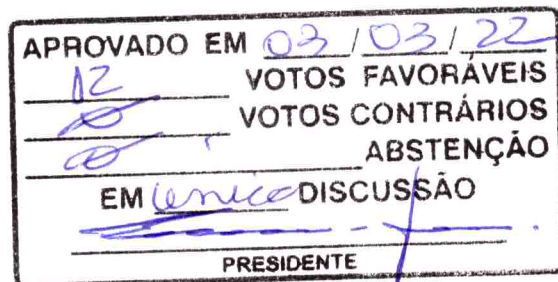 APROVADO EM 03/03/22
12 VOTOS FAVORÁVEIS
Ø VOTOS CONTRÁRIOS
Ø ABSTENÇÃO
EM única DISCUSSÃO
PRESIDENTE